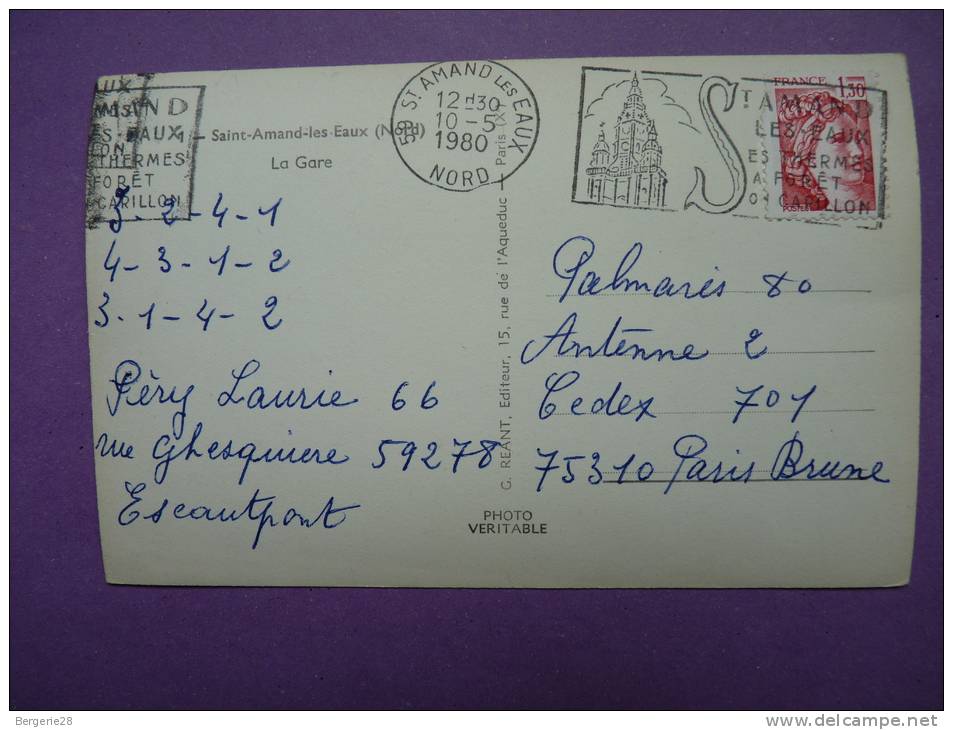 AUX
AMAND
LES EAUX
THERMES
FORÊT
CARILLON
Saint-Amand-les-Eaux (Nord)
La Gare
59 ST AMAND LES EAUX
12 H30
10 - 5
1980
NORD
ST AMAND
LES EAUX
SES THERMES
SA FORÊT
SON CARILLON
FRANCE 1,30
POSTES
3-2-4-1
4-3-1-2
3-1-4-2
Péry Laurie 66
rue Ghesquiere 59278
Escautpont
G. RÉANT, Editeur, 15, rue de l'Aqueduc — Paris (X)
PHOTO
VERITABLE
Palmarès 80
Antenne 2
Cedex 701
75310 Paris Brune
Bergerie28
www.delcampe.net